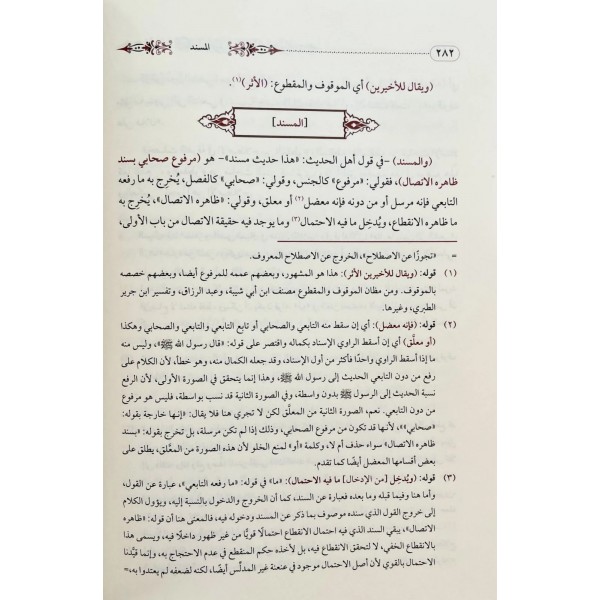 ٢٨٢
المسند
(ويقال للأخيرين) أي الموقوف والمقطوع: (الأثر)(١).
[المسند]
(والمسند) -في قول أهل الحديث: «هذا حديث مسند»- هو (مرفوع صحابي بسند
ظاهره الاتصال)، فقولي: «مرفوع» كالجنس، وقولي: «صحابي» كالفصل، يُخرِج به ما رفعه
التابعي فإنه مرسل أو من دونه فإنه معضل(٢) أو معلق، وقولي: «ظاهره الاتصال»، يُخرِج به
ما ظاهره الانقطاع، ويُدخِل ما فيه الاحتمال(٣) وما يوجد فيه حقيقة الاتصال من باب الأولى،
= «تجوزًا عن الاصطلاح»، الخروج عن الاصطلاح المعروف.
(١) قوله: (ويقال للأخيرين الأثر): هذا هو المشهور، وبعضهم عممه للمرفوع أيضا، وبعضهم خصصه
بالموقوف. ومن مظان الموقوف والمقطوع مصنف ابن أبي شيبة، وعبد الرزاق، وتفسير ابن جرير
الطبري، وغيرها.
(٢) قوله: (فإنه معضل): أي إن سقط منه التابعي والصحابي أو تابع التابعي والتابعي والصحابي وهكذا
(أو معلَّق) أي إن أسقط الراوي الإسناد بكماله واقتصر على قوله: «قال رسول الله ﷺ»، وليس منه
ما إذا أسقط الراوي واحدًا فأكثر من أول الإسناد، وقد جعله الكمال منه، وهو خطأ، لأن الكلام على
رفع من دون التابعي الحديث إلى رسول الله ﷺ، وهذا إنما يتحقق في الصورة الأولى، لأن الرفع
نسبة الحديث إلى الرسول ﷺ بدون واسطة، وفي الصورة الثانية قد نسب بواسطة، فليس هو مرفوع
من دون التابعي. نعم، الصورة الثانية من المعلَّق لكن لا تجري هنا فلا يقال: «إنها خارجة بقوله:
«صحابي»»، لأنها قد تكون من مرفوع الصحابي، وذلك إذا لم تكن مرسلة، بل تخرج بقوله: «بسند
ظاهره الاتصال» سواء حذف أم لا، وكلمة «أو» لمنع الخلو لأن هذه الصورة من المعلَّق، يطلق على
بعض أقسامها المعضل أيضًا كما تقدم.
(٣) قوله: (ويُدخِل [من الإدخال] ما فيه الاحتمال): «ما» في قوله: «ما رفعه التابعي»، عبارة عن القول،
وأما هنا وفيما قبله وما بعده فعبارة عن السند، كما أن الخروج والدخول بالنسبة إليه، ويؤول الكلام
إلى خروج القول الذي سنده موصوف بما ذكر عن المسند ودخوله فيه، فالمعنى هنا أن قوله: «ظاهره
الاتصال»، يبقي السند الذي فيه احتمال الانقطاع احتمالًا قويًّا من غير ظهور داخلًا فيه، ويسمى هذا
بالانقطاع الخفي، لا لتحقق الانقطاع فيه، بل لأخذه حكم المنقطع في عدم الاحتجاج به، وإنما قيَّدنا
الاحتمال بالقوي لأن أصل الاحتمال موجود في عنعنة غير المدلِّس أيضًا، لكنه لضعفه لم يعتدوا به،=